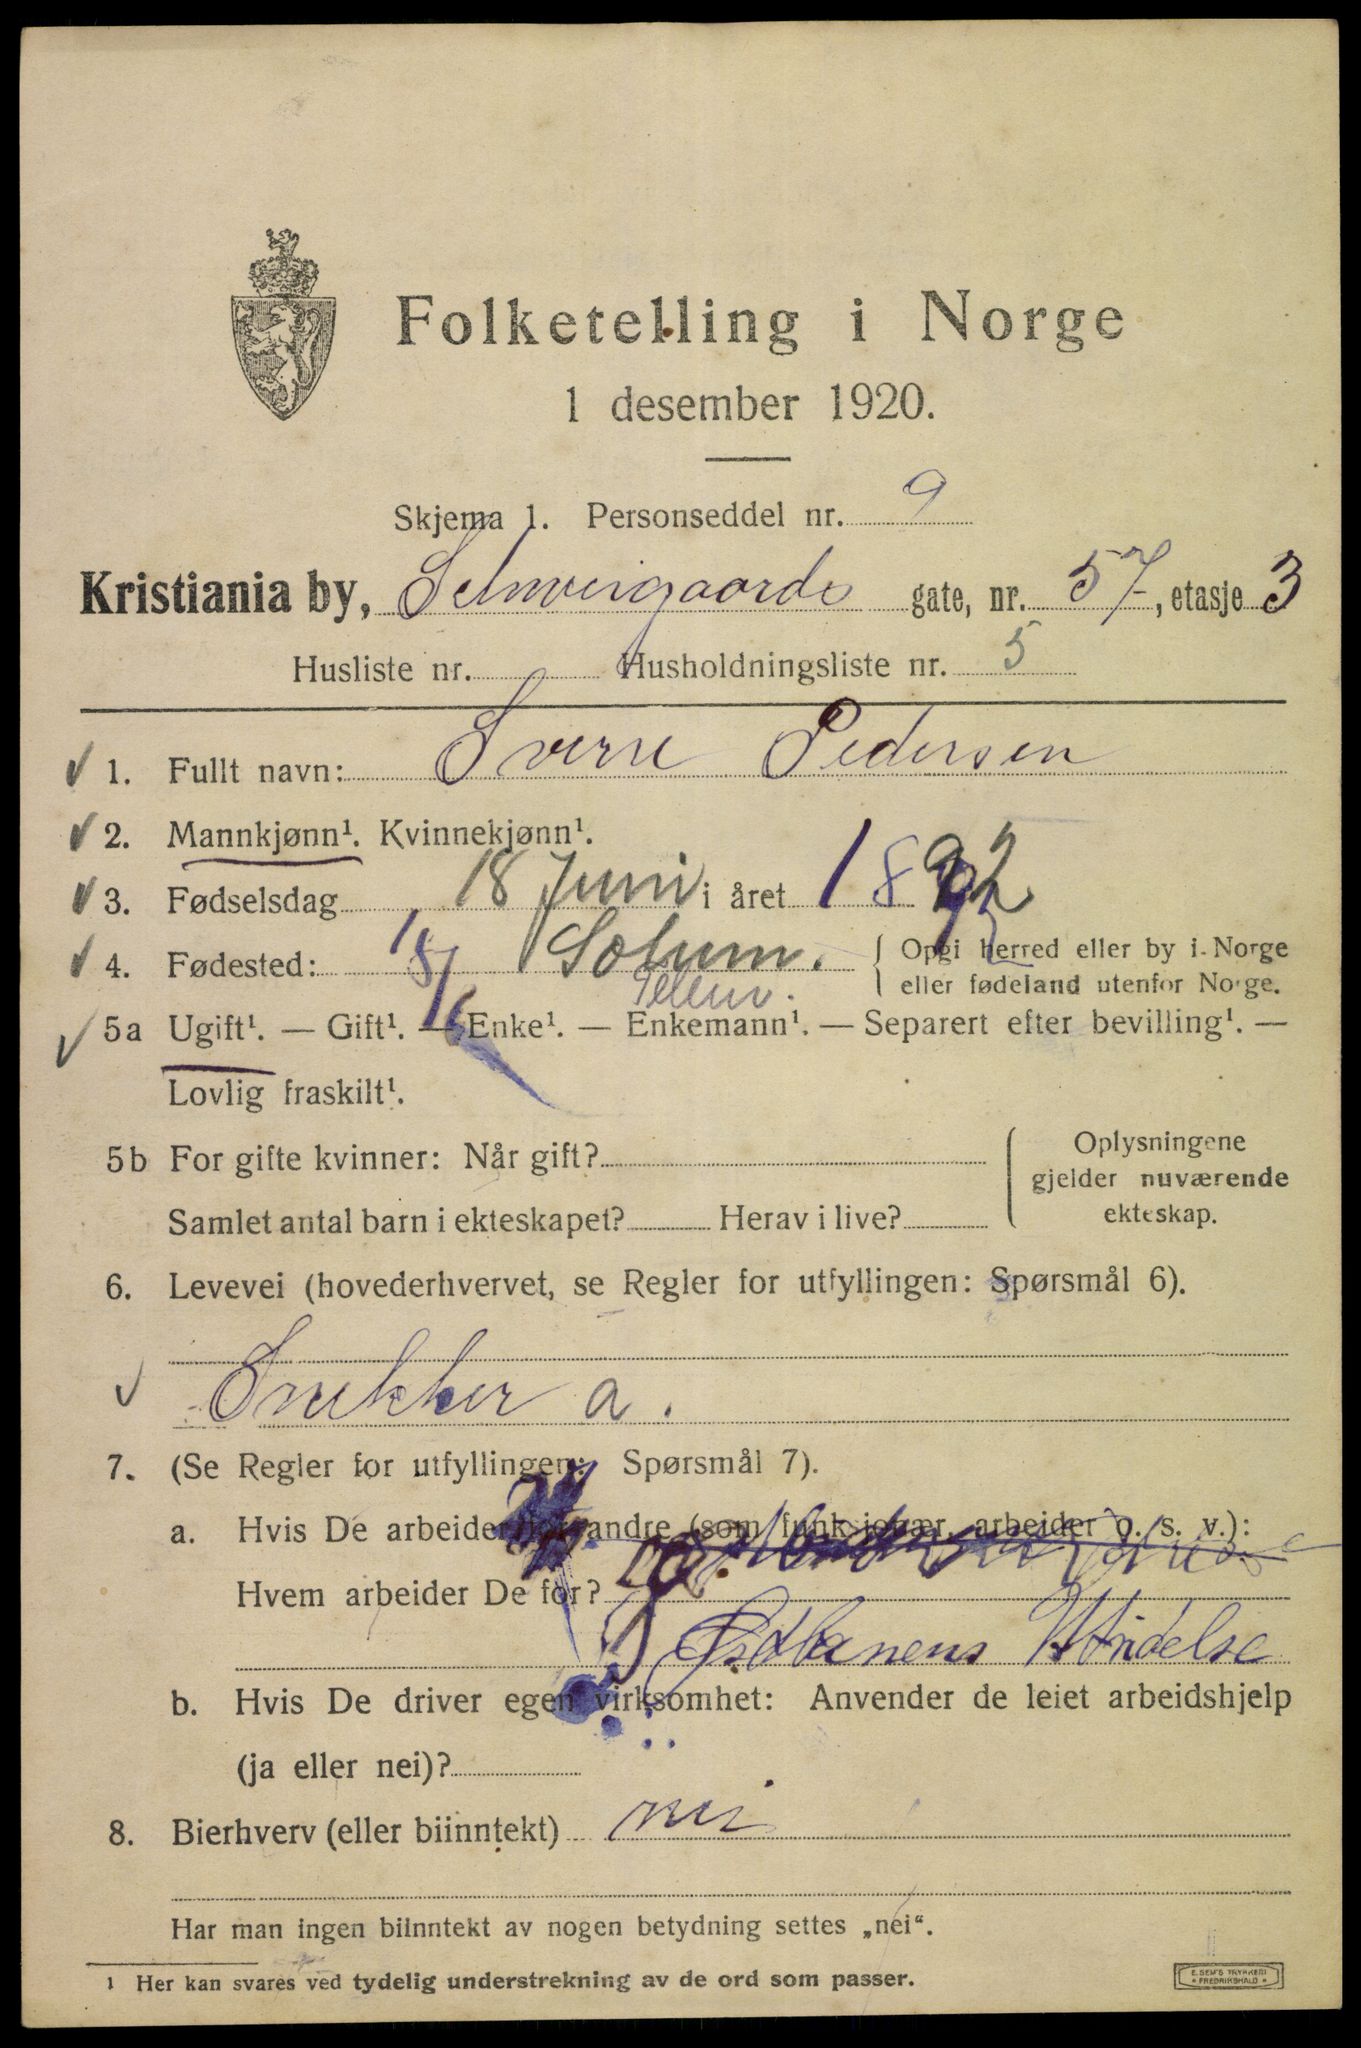 Folketelling i Norge
1 desember 1920.
Skjema 1. Personseddel nr. 9
Kristiania by, Schweigaards gate, nr. 57, etasje 3
Husliste nr. Husholdningsliste nr. 5
1. Fullt navn: Sverre Pedersen
2. Mannkjønn¹. Kvinnekjønn¹.
3. Fødselsdag 18 Juni i året 1892
4. Fødested: 18/6 Solum. { Opgi herred eller by i Norge
eller fødeland utenfor Norge.
Telem.
5a Ugift¹. — Gift¹. — Enke¹. — Enkemann¹. — Separert efter bevilling¹. —
Lovlig fraskilt¹.
5b For gifte kvinner: Når gift?
Samlet antal barn i ekteskapet? Herav i live?
{ Oplysningene
gjelder nuværende
ekteskap.
6. Levevei (hovederhvervet, se Regler for utfyllingen: Spørsmål 6).
Snekker a.
7. (Se Regler for utfyllingen: Spørsmål 7).
a. Hvis De arbeider for andre (som funksjonær, arbeider o. s. v.):
Hvem arbeider De for?
Østbanens
b. Hvis De driver egen virksomhet: Anvender de leiet arbeidshjelp
(ja eller nei)?
8. Bierhverv (eller biinntekt) nei
Har man ingen biinntekt av nogen betydning settes „nei“.
¹ Her kan svares ved tydelig understrekning av de ord som passer.
E. SEM'S TRYKKERI
FREDRIKSHALD